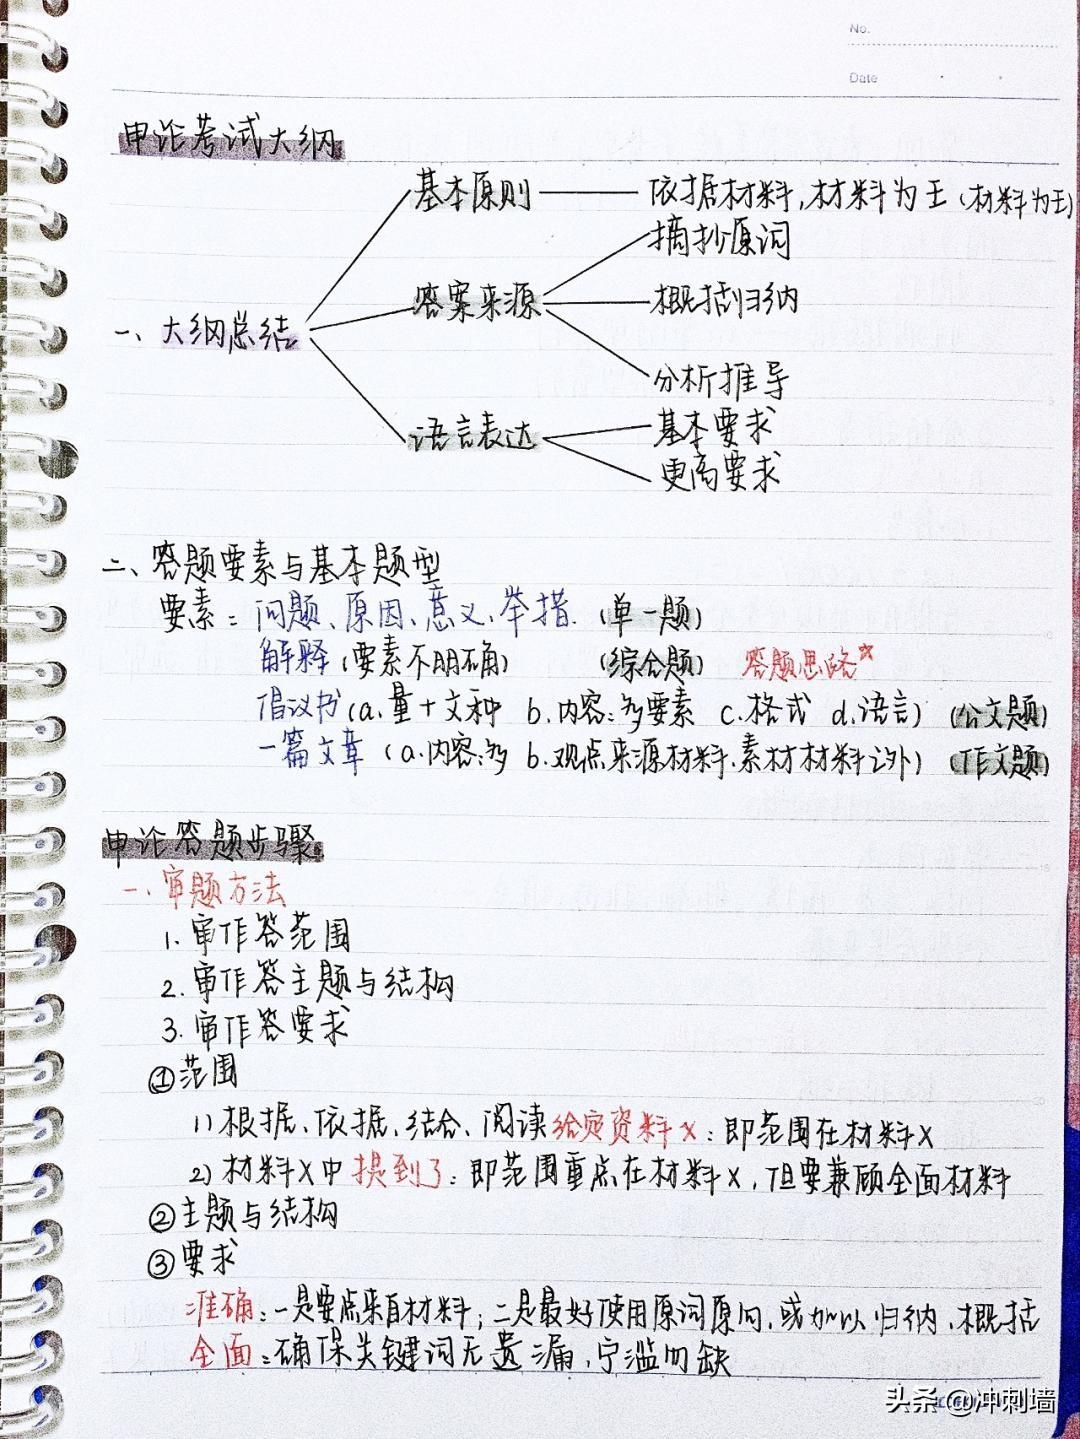 No.
Date
申论考试大纲
基本原则
依据材料,材料为王(材料为王)
摘抄原词
答案来源
概括归纳
一、大纲总结
分析推导
语言表达
基本要求
更高要求
二、答题要素与基本题型
要素:问题、原因、意义、举措.(单一题)
解释(要素不明确) (综合题) 答题思路☆
倡议书(a.量+文种 b.内容:多要素 c.格式 d.语言)(公文题)
一篇文章(a.内容:多 b.观点来源材料.素材材料之外)(作文题)
申论答题步骤
一、审题方法
1.审作答范围
2.审作答主题与结构
3.审作答要求
①范围
1)根据、依据、结合、阅读给定资料X:即范围在材料X
2)材料X中提到了:即范围重点在材料X,但要兼顾全面材料
②主题与结构
③要求
准确:一是要点来自材料;二是最好使用原词原句,或加以归纳、概括
全面:确保关键词无遗漏,宁滥勿缺
头条@冲刺墙